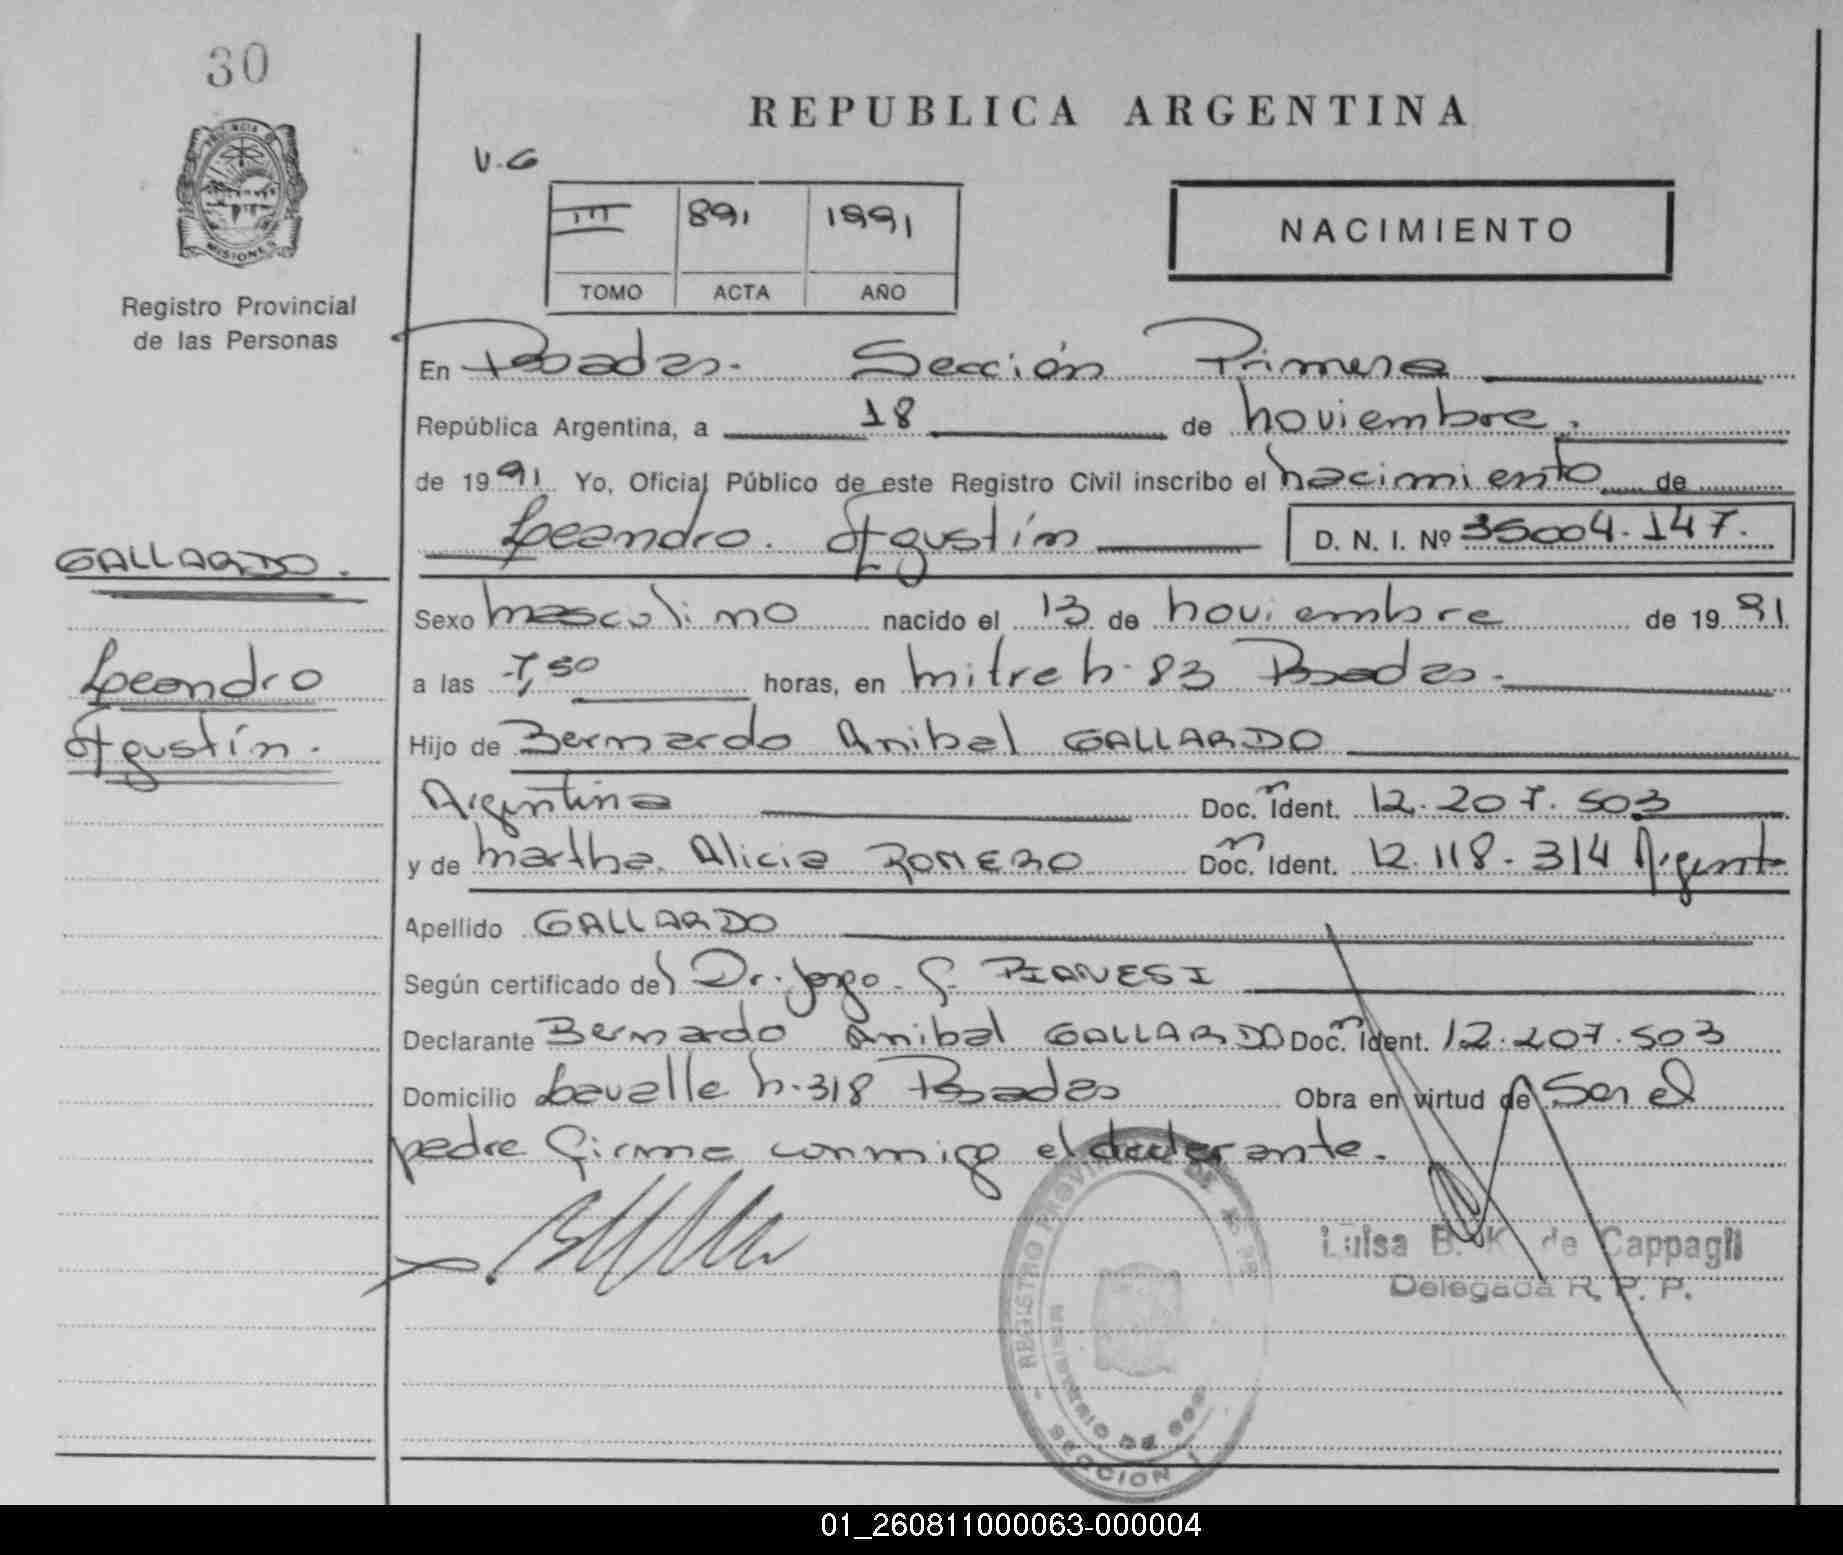 30
PROVINCIA DE
MISIONES
Registro Provincial
de las Personas
REPUBLICA ARGENTINA
V.G
III 891 1991
TOMO ACTA AÑO
NACIMIENTO
En Posadas. Sección Primera
República Argentina, a 18 de noviembre.
de 1991 Yo, Oficial Público de este Registro Civil inscribo el nacimiento de
Leandro. Agustín D. N. I. Nº 35004.147.
GALLARDO.
Leandro
Agustín.
Sexo masculino nacido el 13 de noviembre de 1991
a las 7,50 horas, en mitre n. 83 Posadas.
Hijo de Bernardo Anibal GALLARDO
Argentina Doc. Ident. 12.207.503
y de martha. Alicia ROMERO Doc. Ident. 12.118.314 Argent
Apellido GALLARDO
Según certificado del Dr. Jorge. G. PIANESI
Declarante Bernardo Anibal GALLARDO Doc. Ident. 12.207.503
Domicilio Lavalle n. 318 Posadas Obra en virtud de Ser el
padre firma conmigo el declarante.
Luisa B. K. de Cappagli
Delegada R. P. P.
REGISTRO PROVINCIAL DE
MINISTERIO DE GOB
SECCION 1
01_260811000063-000004